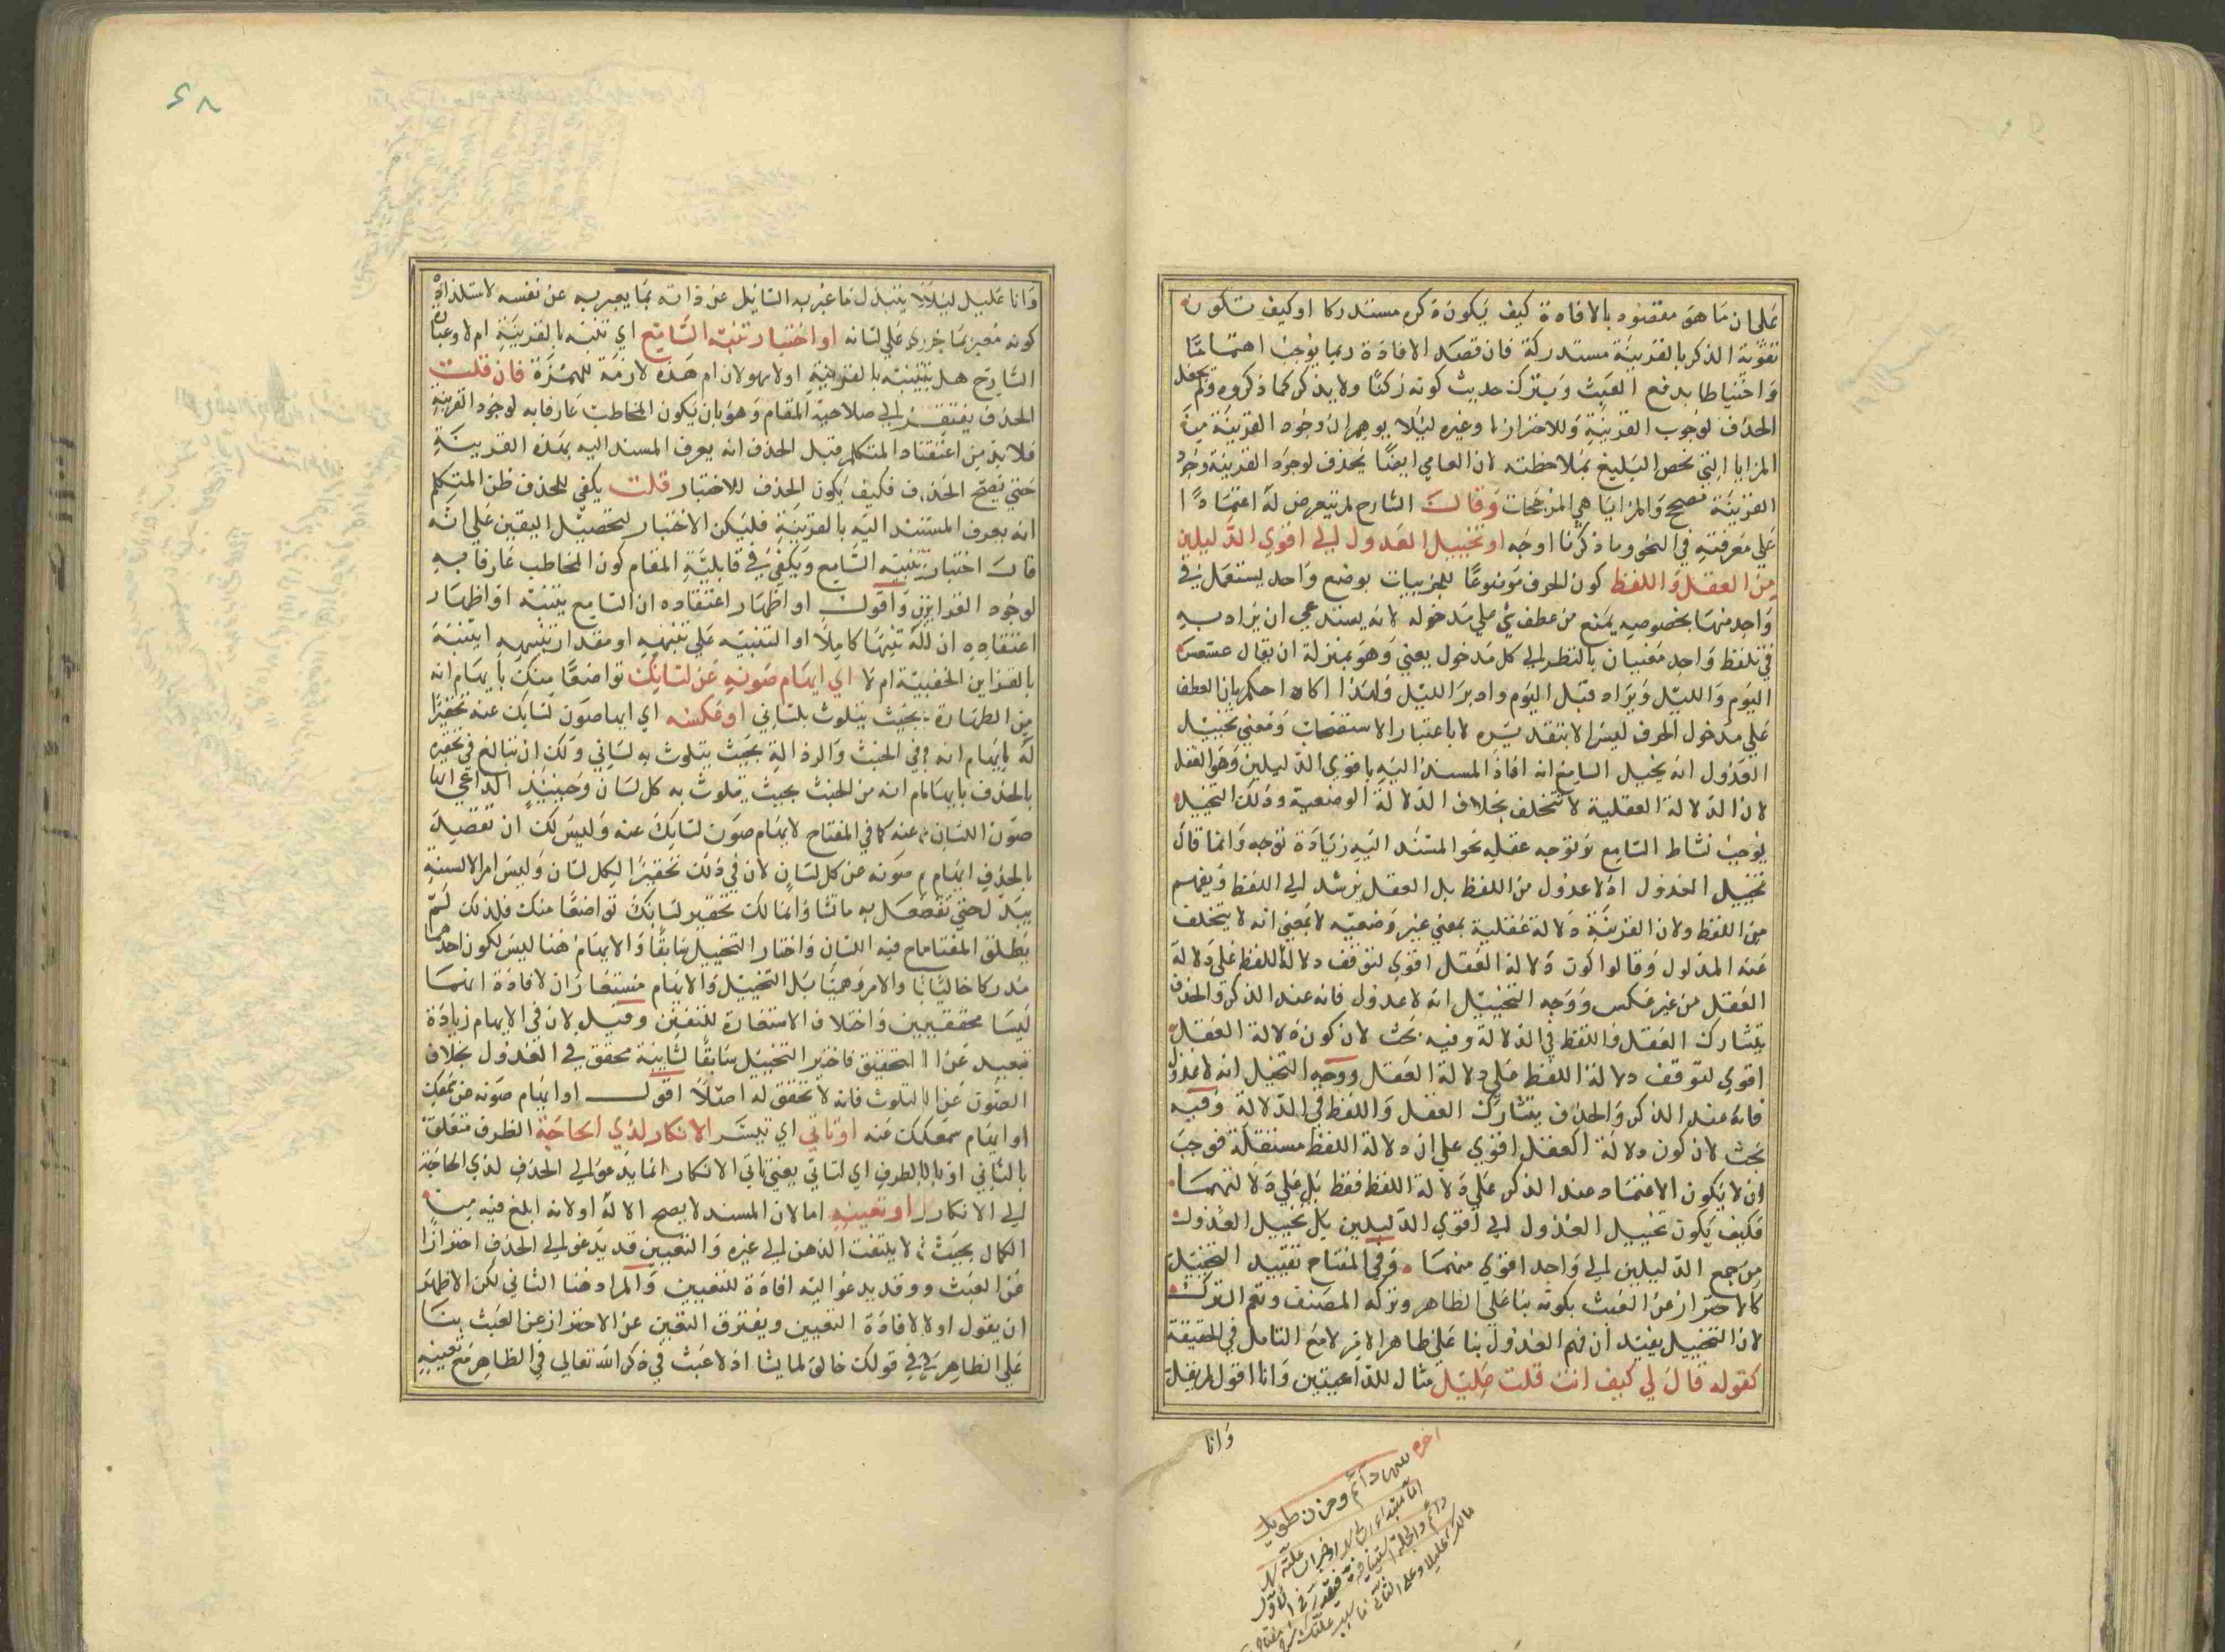 على ان ما هو مقصود بالافادة كيف يكون ذكره مستدركا او كيف تكون
تقوية الذكر بالقرينة مستدركة فان قصد الافادة ربما يوجب اهتماما
واحتياطا بدفع العبث ويترك حديث كونه ركنا ولا يذكر كما ذكروه ولم يجعل
الحذف لوجوب القرينة وللاحتراز وغيره ليلا يوهم ان وجود القرينة مزية
المزايا التي تخص البليغ بملاحظته لان العامي ايضا يحذف لوجود القرينة وجود
القرينة مصحح والمزايا هي المرجحات وقال الشارح لم يتعرض له اعتمادا
على معرفته في النحو وما ذكرنا اوجه او تخييل العدول الى اقوى الدليلين
من العقل واللفظ كون الحرف موضوعا للجزييات بوضع واحد يستعمل في
واحد منها بخصوصه يمنع من عطف شي على مدخوله لانه يستدعي ان يراد به
في تلفظ واحد معنيان بالنظر الى كل مدخول يعني وهو بمنزلة ان يقال عسعس
اليوم والليل ويراد قبل اليوم وادبر الليل ولهذا احكم بان العطف
على مدخول الحرف ليس الا بتقديره لا باعتبار الاستقصاء ومعنى تخييل
العدول انه يخيل السامع انه افاد المسند اليه باقوى الدليلين وهو العقل
لان الدلالة العقلية لا تتخلف بخلاف الدلالة الوضعية وذلك التخييل
يوجب نشاط السامع وتوجه عقله نحو المسند اليه زيادة توجه وانما قال
تخييل العدول اذ لا عدول من اللفظ بل العقل يرشد الى اللفظ ويفهم
من اللفظ ولان القرينة دلالة عقلية بمعنى غير وضعيه لا بمعنى انه لا يتخلف
عنه المدلول وقالوا كون دلالة العقل اقوى لتوقف دلالة اللفظ على دلالة
العقل من غير عكس ووجه التخييل انه لا عدول فانه عند الذكر والحذف
يتشارك العقل واللفظ في الدلالة وفيه بحث لان كون دلالة العقل
اقوى لتوقف دلالة اللفظ على دلالة العقل ووجه التخيل انه لا عدول
فانه عند الذكر والحذف يتشارك العقل واللفظ في الدلالة وفيه
بحث لان كون دلالة العقل اقوى على ان دلالة اللفظ مستقلة فوجب
ان لا يكون الاعتماد عند الذكر على دلالة اللفظ فقط بل على دلالتهما
فكيف يكون تخييل العدول الى اقوى الدليلين بل تخييل العدول
من جمع الدليلين الى واحد اقوى منهما وفي المفتاح تقييد التخييل
كالاحتراز عن العبث بكونه بنا على الظاهر وتركه المصنف ونعم الترك
لان التخييل يفيد ان نهم العدول بنا على ظاهر الامر لا مع التامل في الحقيقة
كقوله قال لي كيف انت قلت عليل مثال للداعيين وانا اقول لم يقل
وانا
اخره
سهر دائم وحزن طويل
وانا عليل ليلا يتبذل ما عبر به السايل عن ذاته بما يعبر به عن نفسه لاستلذاذه
كونه معبر بما جرى على لسانه او اختبار تنبه السامع اي تنبه بالقرينة ام لا وعبارة
الشارح هل يتنبه بالقرينة او لا سهو لان ام هذه لازمة للهمزة فان قلت
الحذف يفتقر الى صلاحية المقام وهو بان يكون المخاطب عارفا به لوجود القرينة
فلا بد من اعتقاد المتكلم قبل الحذف انه يعرف المسند اليه بهذه القرينة
حتى يصح الحذف فكيف يكون الحذف للاختبار قلت يكفي للحذف ظن المتكلم
انه يعرف المسند اليه بالقرينة فليكن الاختبار لتحصيل اليقين على انه
قال اختبار تنبه السامع ويكفي في قابلية المقام كون المخاطب عارفا به
لوجود القراين واقول او اظهار اعتقاده ان السامع يتنبه او اظهار
اعتقاده ان له تنبها كاملا او التنبيه على تنبهه او مقدار تنبهه ايتنبه
بالقراين الخفية ام لا اي ايهام صونه عن لسانك تواضعا منك بايهام انه
من الطهارة بحيث يتلوث بلساني او عكسه اي ايها صون لسانك عنه تحقيرا
له بايهام انه في الخبث والرذالة بحيث يتلوث به لساني ولك ان تبالغ في تحقيره
بالحذف بايهام انه من الخبث بحيث يتلوث به كل لسان وحينيذ الداعي ايهام
صون اللسان عنه كما في المفتاح لا ايهام صون لسانك عنه وليس لك ان تقصد
بالحذف ايهام صونه عن كل لسان لان في ذلك تحقيرا لكل لسان وليس امر الالسنة
بيدك حتى تفعل به ما تشا وانما لك تحقير لسانك تواضعا منك فلذلك لم
يطلق المفتاح فيه اللسان واختار التخييل سابقا والايهام هنا ليس لكون احدهما
مدركا خاليا والامر وهميا بل التخييل والايهام مستعاران لافادة انهما
ليسا محققين واختلاف الاستعارة للتفنن وقيل لان في الايهام زيادة
تبعيد عن التحقيق فاختير التخييل سابقا لشايبة محقق في العدول بخلاف
الصون عن التلوث فانه لا تحقق له اصلا اقول او ايهام صونه عن سمعك
او ايهام سمعك عنه او تاتي اي تيسر الانكار لدى الحاجة الظرف متعلق
بالتاتي او بالظرف اي لتاتي يعني تاتي الانكار انما يدعو الى الحذف لدى الحاجة
الى الانكار او تعينه اما لان المسند لا يصح الا له او لانه ابلغ فيه من
الكمال بحيث لا يلتفت الذهن الى غيره والتعيين قد يدعو الى الحذف احترازا
عن العبث وقد يدعو اليه افادة للتعيين والمراد هنا الثاني لكن الاظهر
ان يقول او لافادة التعيين ويفترق التعين عن الاحتراز عن العبث بنا
على الظاهر في قولك خالق لما يشا اذ لا عبث في ذكر الله تعالى في الظاهر مع تعينه